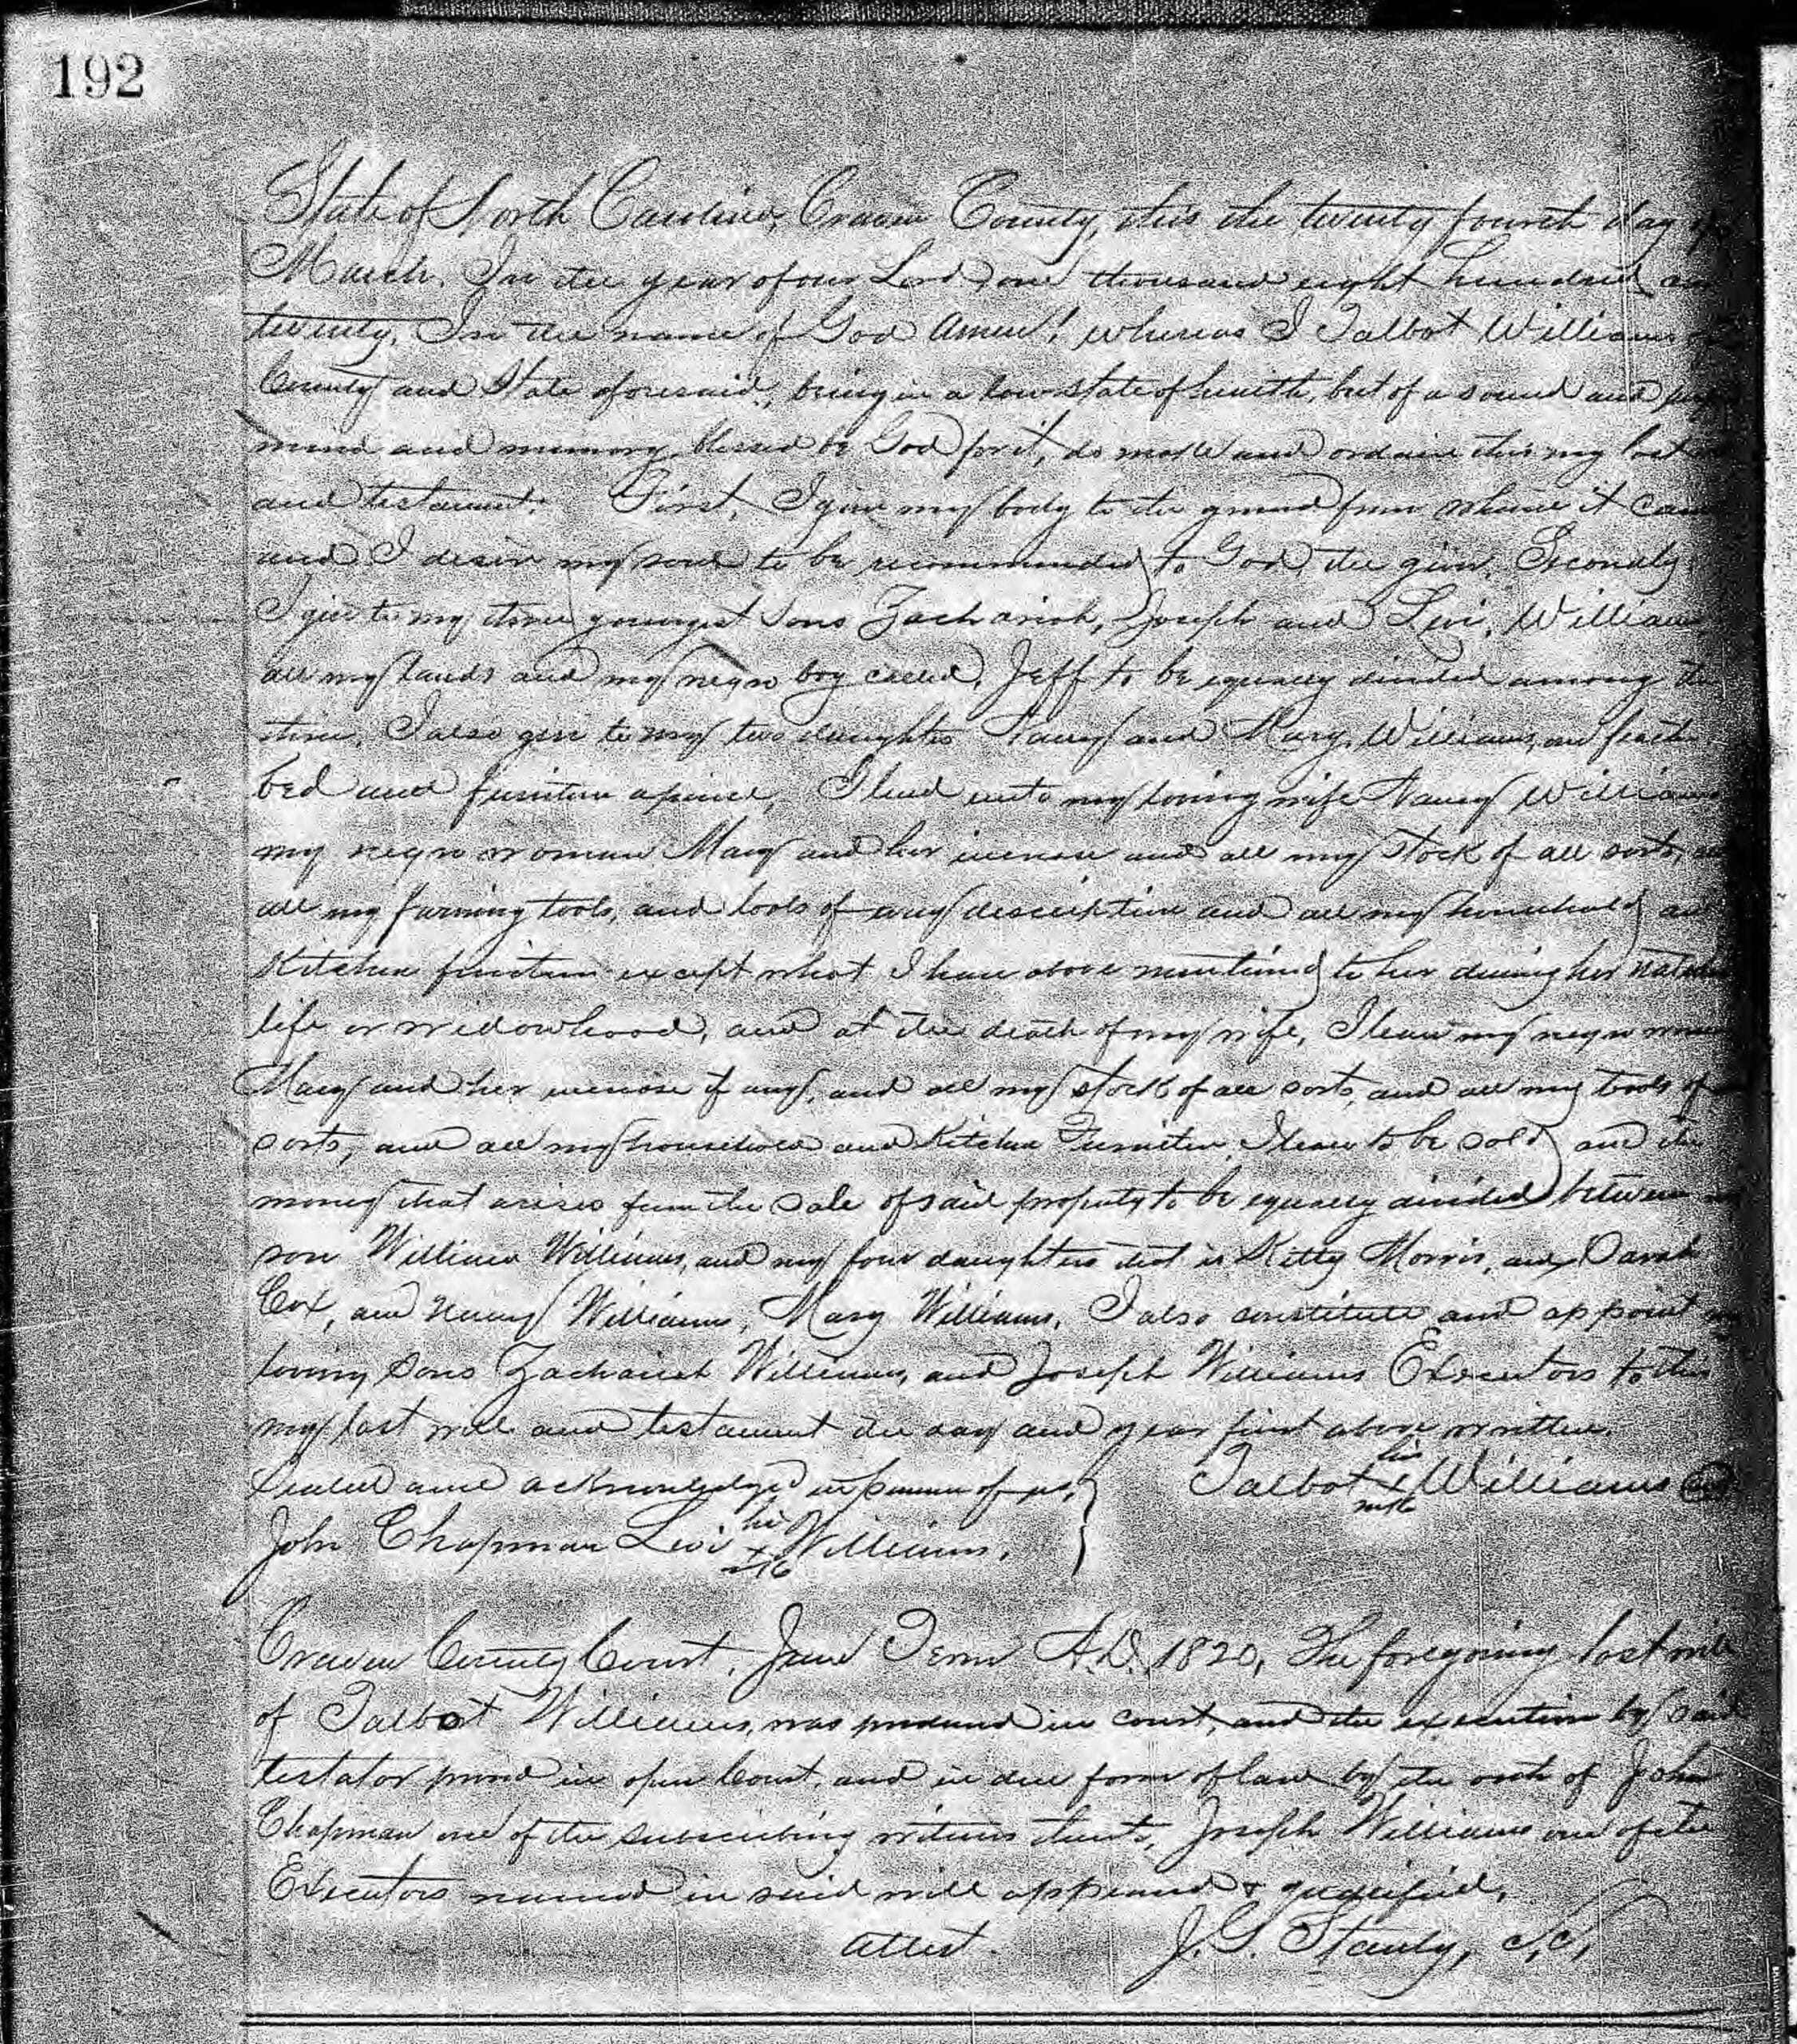 192
State of North Carolina, Craven County, this the twenty fourth day of
March. In the year of our Lord one thousand eight hundred an
twenty. In the name of God Amen! whereas I Talbot Williams of
County and State aforesaid, being in a low state of health, but of a sound and
mind and memory, blessed be God for it, do make and ordain this my last
and testament. First, I give my body to the ground from whence it came
and I desire my soul to be recommended to God, the giver, Secondly
I give to my three youngest sons Zachariah, Joseph and Levi, Williams
all my lands and my negro boy called, Jeff to be equally divided among the
three. I also give to my two daughters Nancy and Mary, Williams, one feather
bed and furniture apiece, I lend unto my loving wife Nancy Williams
my negro woman Mary and her increase and all my stock of all sorts, and
all my farming tools, and tools of every description and all my household and
Kitchen furniture except what I have above mentioned to her during her natural
life or widowhood, and at the death of my wife, I leave my negro woman
Mary and her increase if any, and all my stock of all sorts, and all my tools of
sorts, and all my household and Kitchen Furniture, I leave to be sold and the
money that arises from the sale of said property to be equally divided between my
son William Williams, and my four daughters that is Kitty Morris, and Sarah
Cox, and Nancy Williams, Mary Williams. I also constitute and appoint my
loving sons Zachariah Williams, and Joseph Williams Executors to this
my last will and testament the day and year first above written.
Sealed and acknowledged in presence of us, } Talbot his x mark Williams
John Chapman Levi his x mark Williams.
Craven County Court, June Term A.D. 1820, The foregoing last will
of Talbot Williams, was produced in court, and the execution by said
testator proved in open Court, and in due form of law by the oath of John
Chapman one of the subscribing witness thereto, Joseph Williams one of the
Executors named in said will appeared & qualified,
attest. J. G. Stanly, c,c,